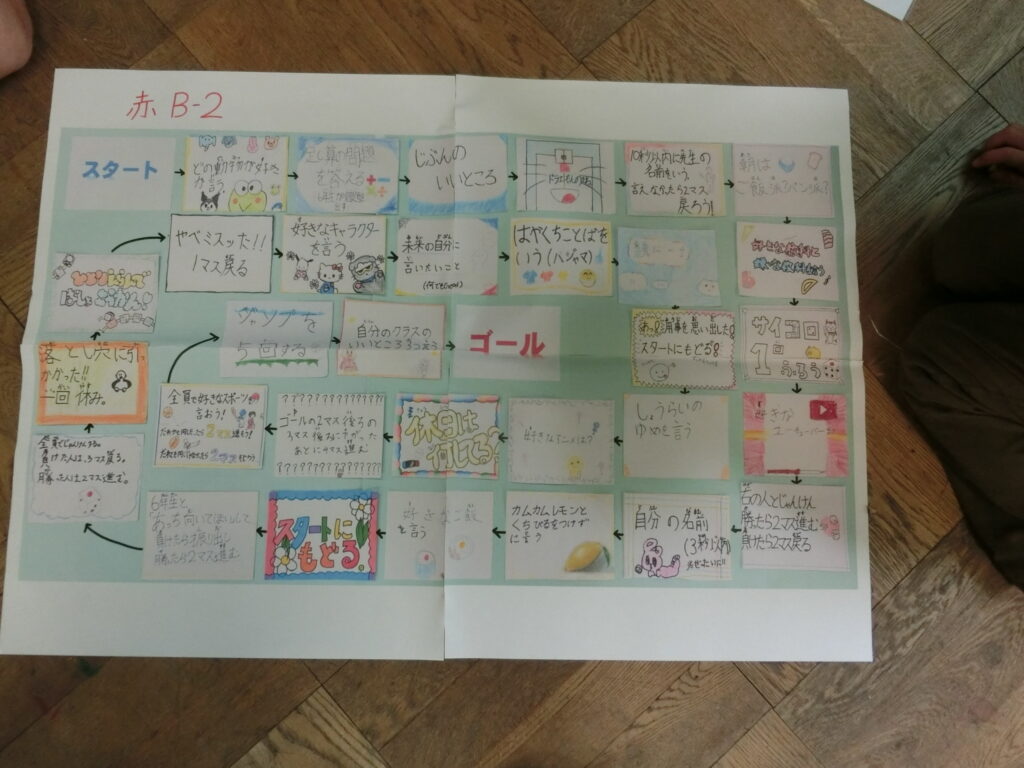 赤 B-2
スタート
どの動物が好きか
言う
足し算の問題
を答える
じぶんの
いいところ
10秒以内に先生の
名前をいう。
言えなかったら2マス
戻ろう!!
朝は
ご飯派?パン派?
好きな教科と
サイコロ
1回
ふろう
好きな
ユーチューバー
右の人とじゃんけん
勝ったら2マス進む
負けたら2マス戻る
自分の名前
(3秒以内)
カムカムレモンと
くちびるをつけず
に言う
を言う
スタートに
もどる。
6年生と
あっち向いてほいして
負けたら振り出し
勝ったら2マス進む
全員でじゃんけんする。
負けた人は、3マス戻る。
勝った人は2マス進む。
落とし穴に引っ
かかった!!
一回休み。
やべミスッた!!
1マス戻る
好きなキャラクター
を言う
未来の自分に
言いたいこと
(何でもOK)
はやくちことばを
いう(ハジャマ)
あっ!!用事を思い出した!
スタートにもどる!
しょうらいの
ゆめを言う
休日は
何してる?
ゴールの2マス後ろの
全員で好きなスポーツを
言おう!
ジャンプを
5回する
自分のクラスの
いいところ3つ言う
ゴール